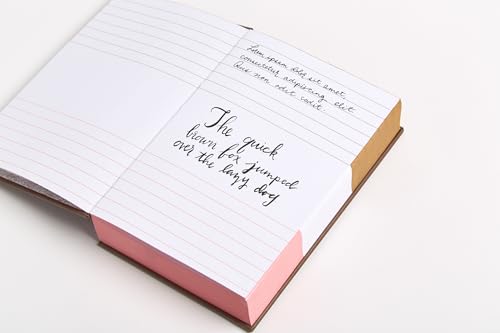 Lorem ipsum dolor sit amet
consectetur adipiscing elit
Quis non odit
The quick
brown fox jumped
over the lazy dog